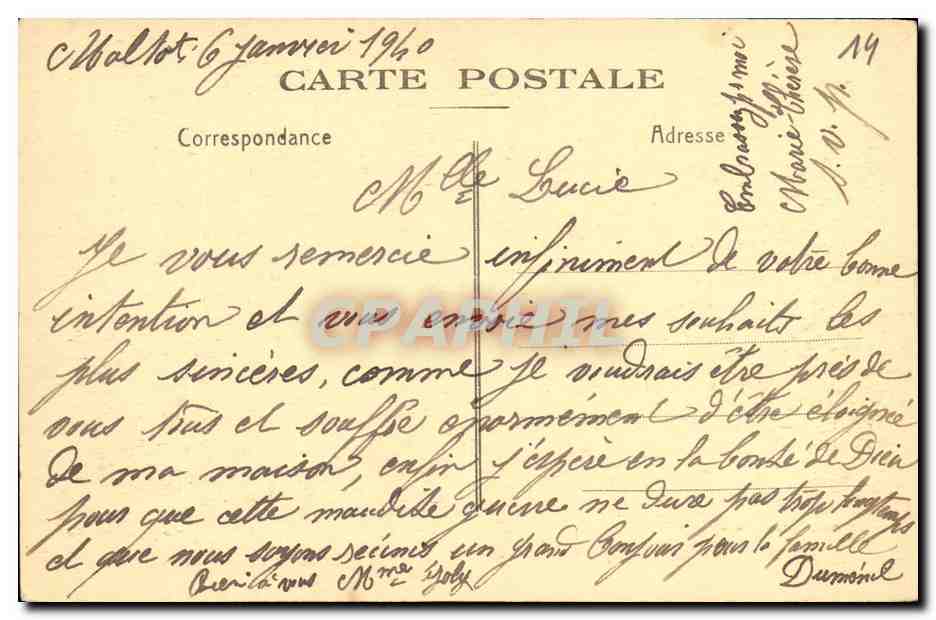 Maltot 6 Janvier 1940
14
CARTE POSTALE
Correspondance
Adresse
Embrassez pr moi
Marie-Thérèse
s. v. p.
Mlle Lucie
Je vous remercie infiniment de votre bonne
intention et vous envoie mes souhaits les
plus sincères, comme je voudrais être près de
vous tous et souffre énormément d'être éloignée
de ma maison, enfin j'espère en la bonté de Dieu
pour que cette maudite guerre ne dure pas trop longtemps
et que nous soyons réunis un grand bonjour pour la famille
Bien à vous Mme
Duménil
CPAPHIL